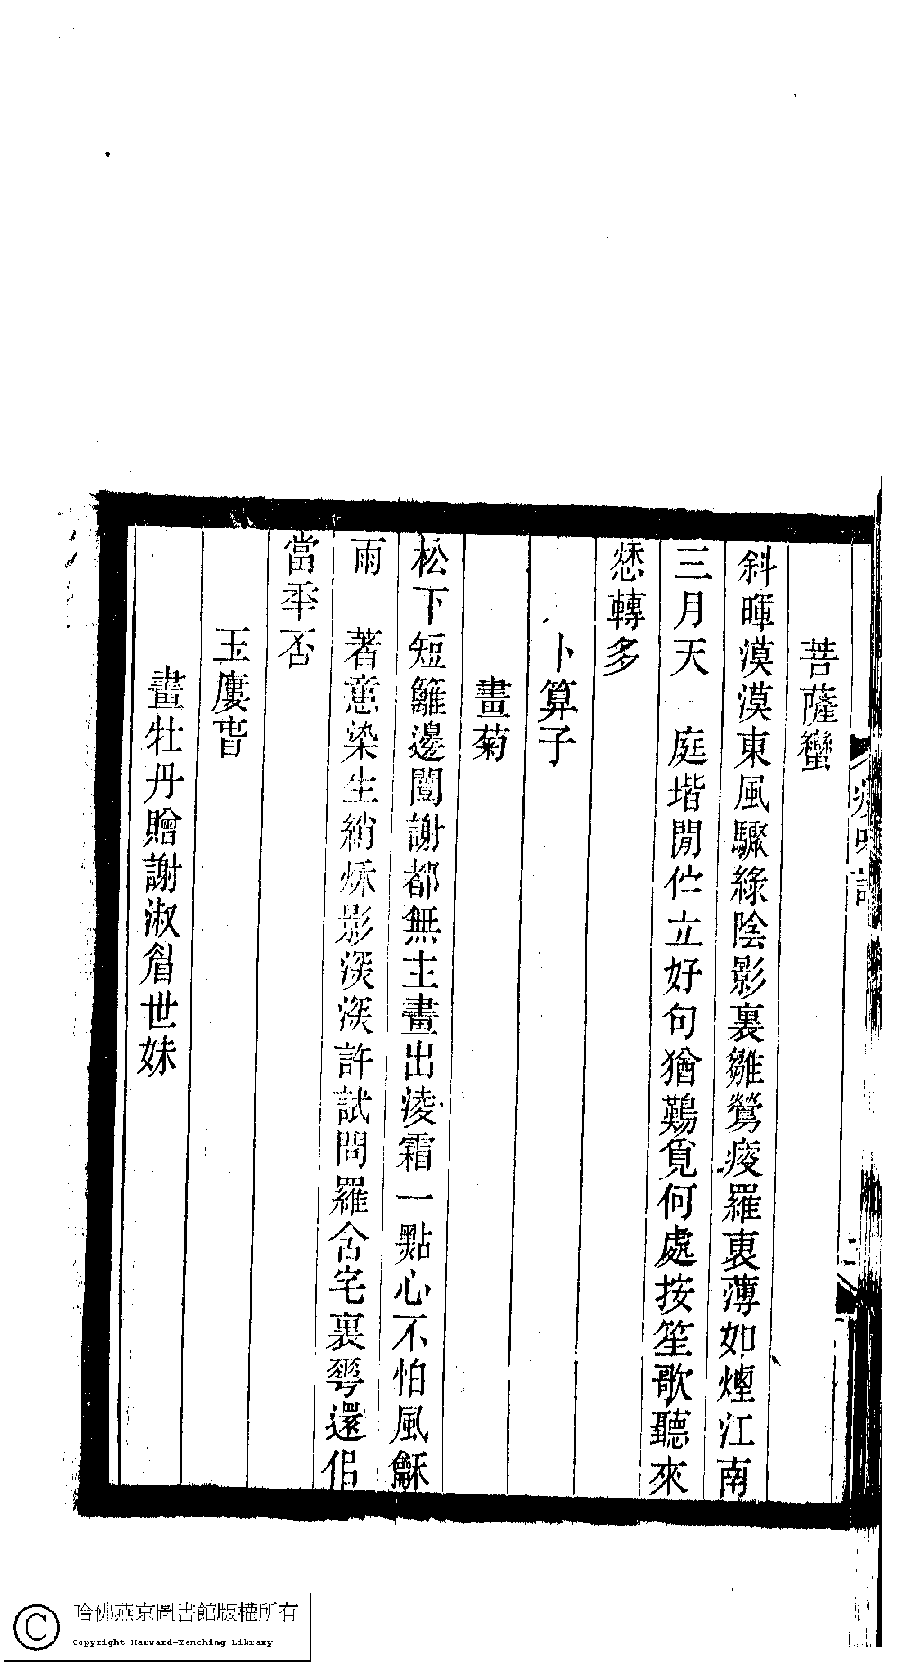 菩薩蠻
斜暉漠漠東風驟綠陰影裏雛鶯瘦羅衷薄如煙江南
三月天　庭堦閒伫立好句猶鷄覓何處按笙歌聽來
愁轉多
卜算子
畫菊
松下短籬邊闓謝都無主畫出淩霜一點心不怕風龢
雨　著意染生綃秌影深深許試問羅含宅裏琴還佀
當秊否
玉廔旾
畫牡丹贈謝淑眉世妹
哈佛燕京圖書館版權所有
Copyright Harvard-Yenching Library